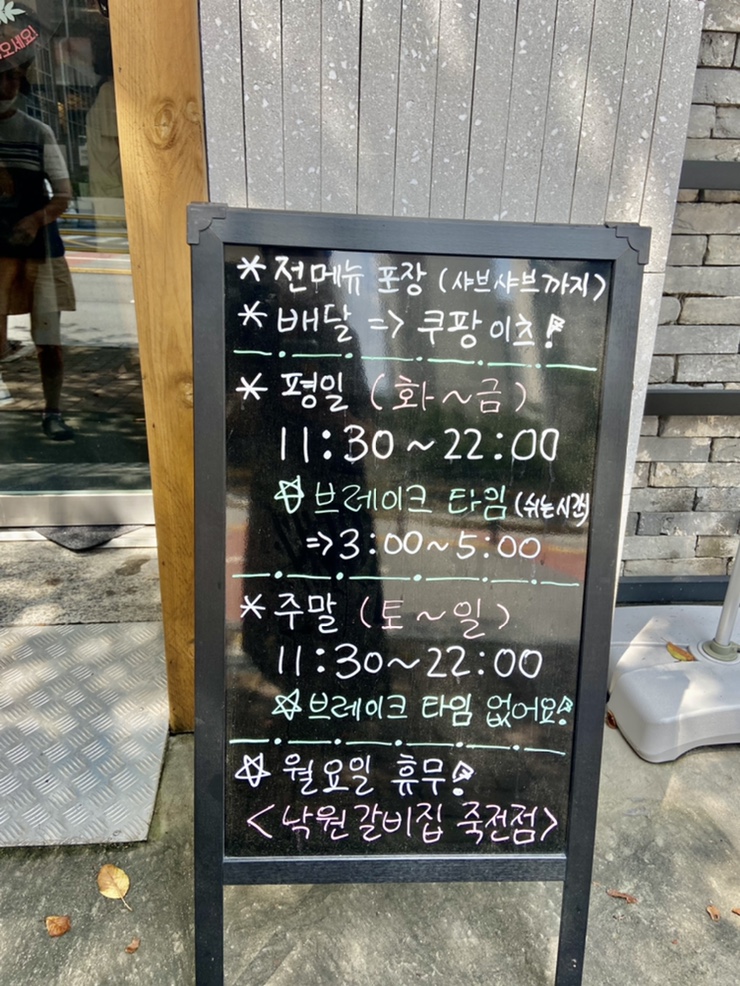 오세요!
* 전메뉴 포장 (샤브샤브까지)
* 배달 => 쿠팡이츠!
* 평일 (화~금)
11:30~22:00
☆브레이크 타임 (쉬는시간)
=>3:00~5:00
* 주말 (토~일)
11:30~22:00
☆브레이크 타임 없어요!
☆ 월요일 휴무!
<낙원갈비집 죽전점>